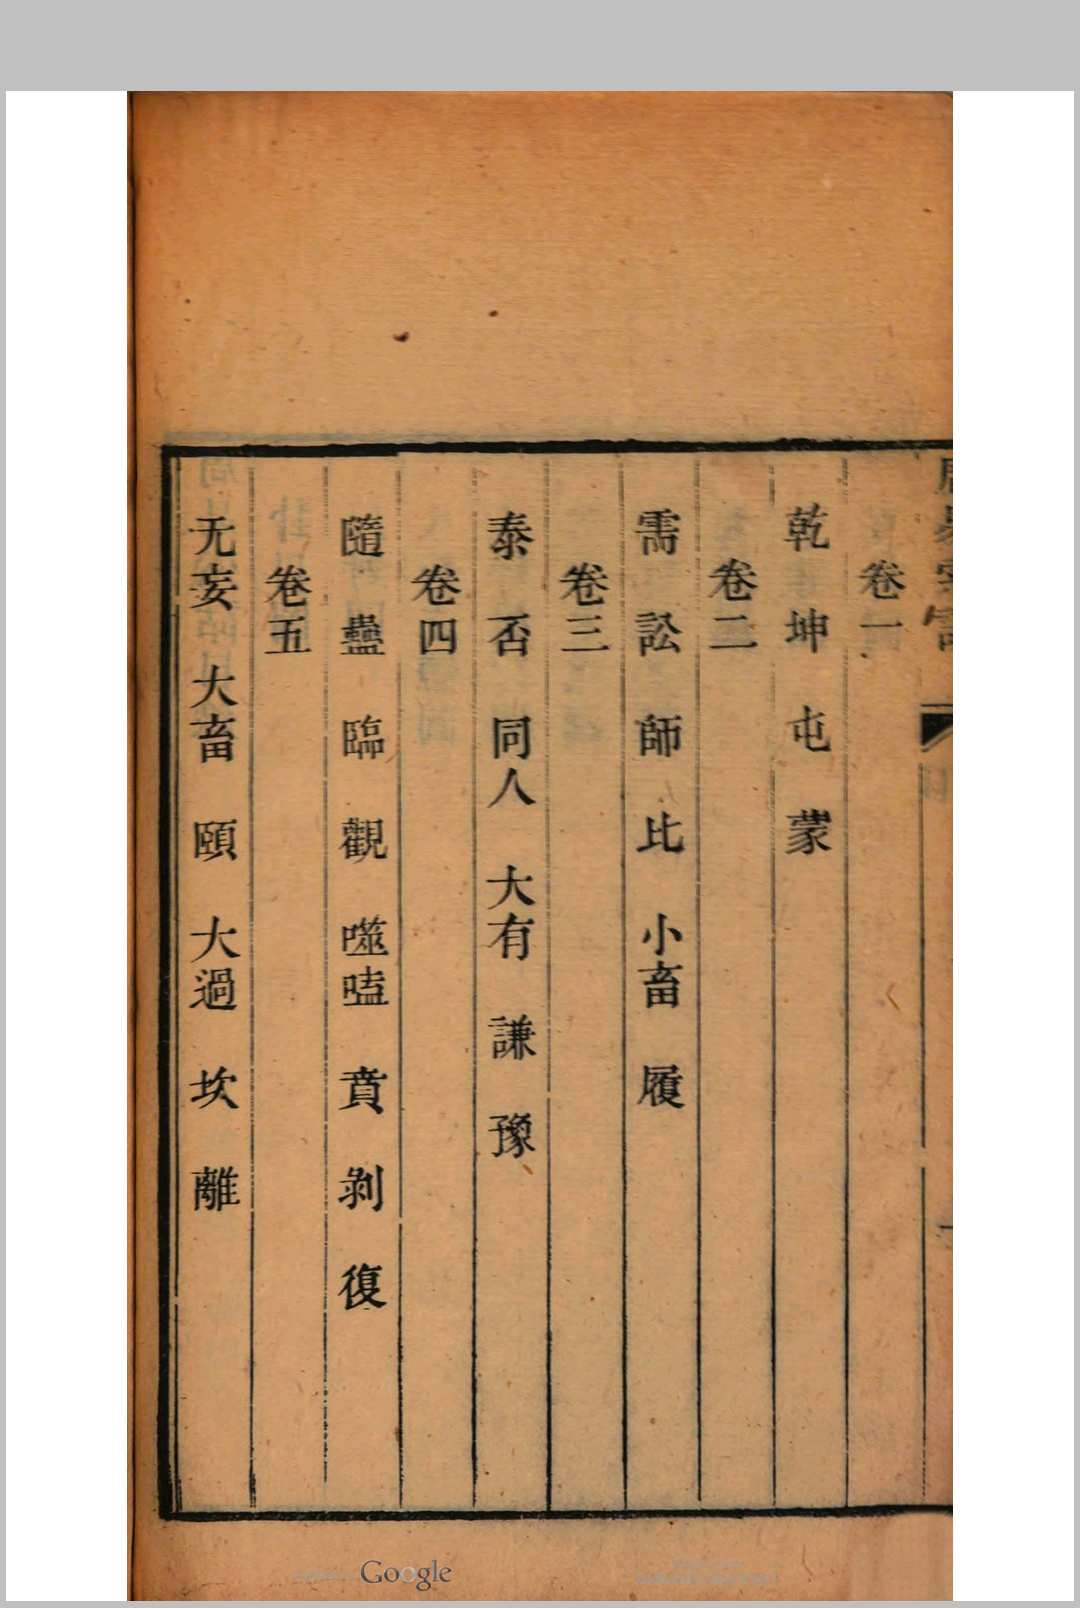 卷一
乾 坤 屯 蒙
卷二
需 訟 師 比 小畜 履
卷三
泰 否 同人 大有 謙 豫
卷四
隨 蠱 臨 觀 噬嗑 賁 剝 復
卷五
无妄 大畜 頤 大過 坎 離
Google